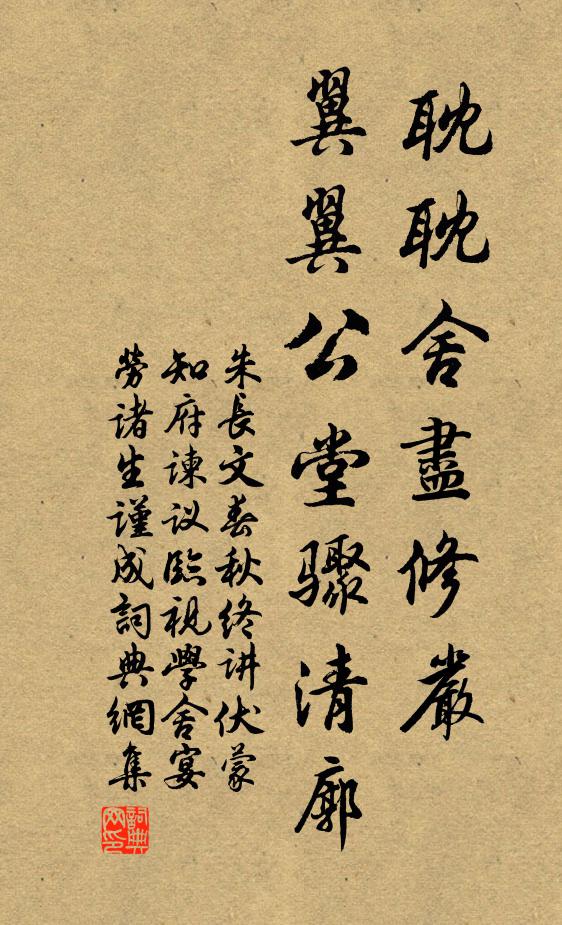 耽耽舍盡修嚴
翼翼公堂驟清廓
朱長文春秋终讲伏蒙
知府谏议臨視學舍宴
勞诸生谨成詞典網集
詞典网印